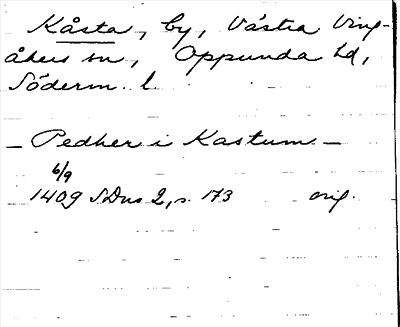 Kåsta, by, Västra Ving-
åkers sn, Oppunda hd,
Söderm. l.
– Pedher i Kastum –
6/9
1409 SDns 2, s. 173 orig.